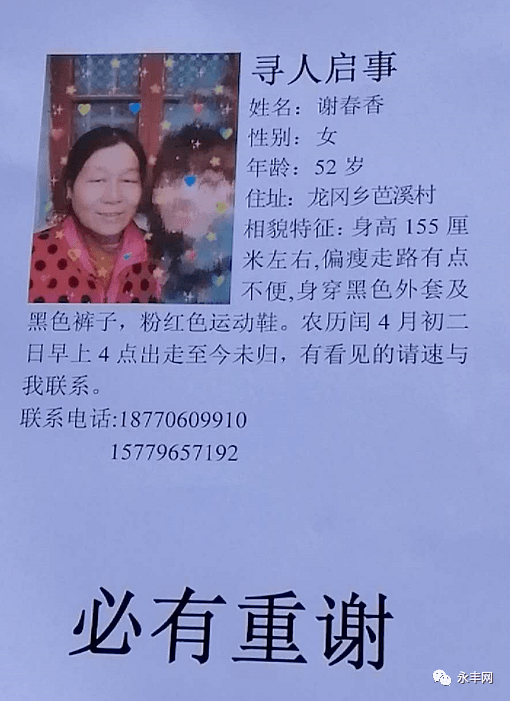 寻人启事
姓名：谢春香
性别：女
年龄：52 岁
住址：龙冈乡芭溪村
相貌特征：身高 155 厘
米左右,偏瘦走路有点
不便,身穿黑色外套及
黑色裤子，粉红色运动鞋。农历闰 4 月初二
日早上 4 点出走至今未归，有看见的请速与
我联系。
联系电话:18770609910
15779657192
必有重谢
永丰网